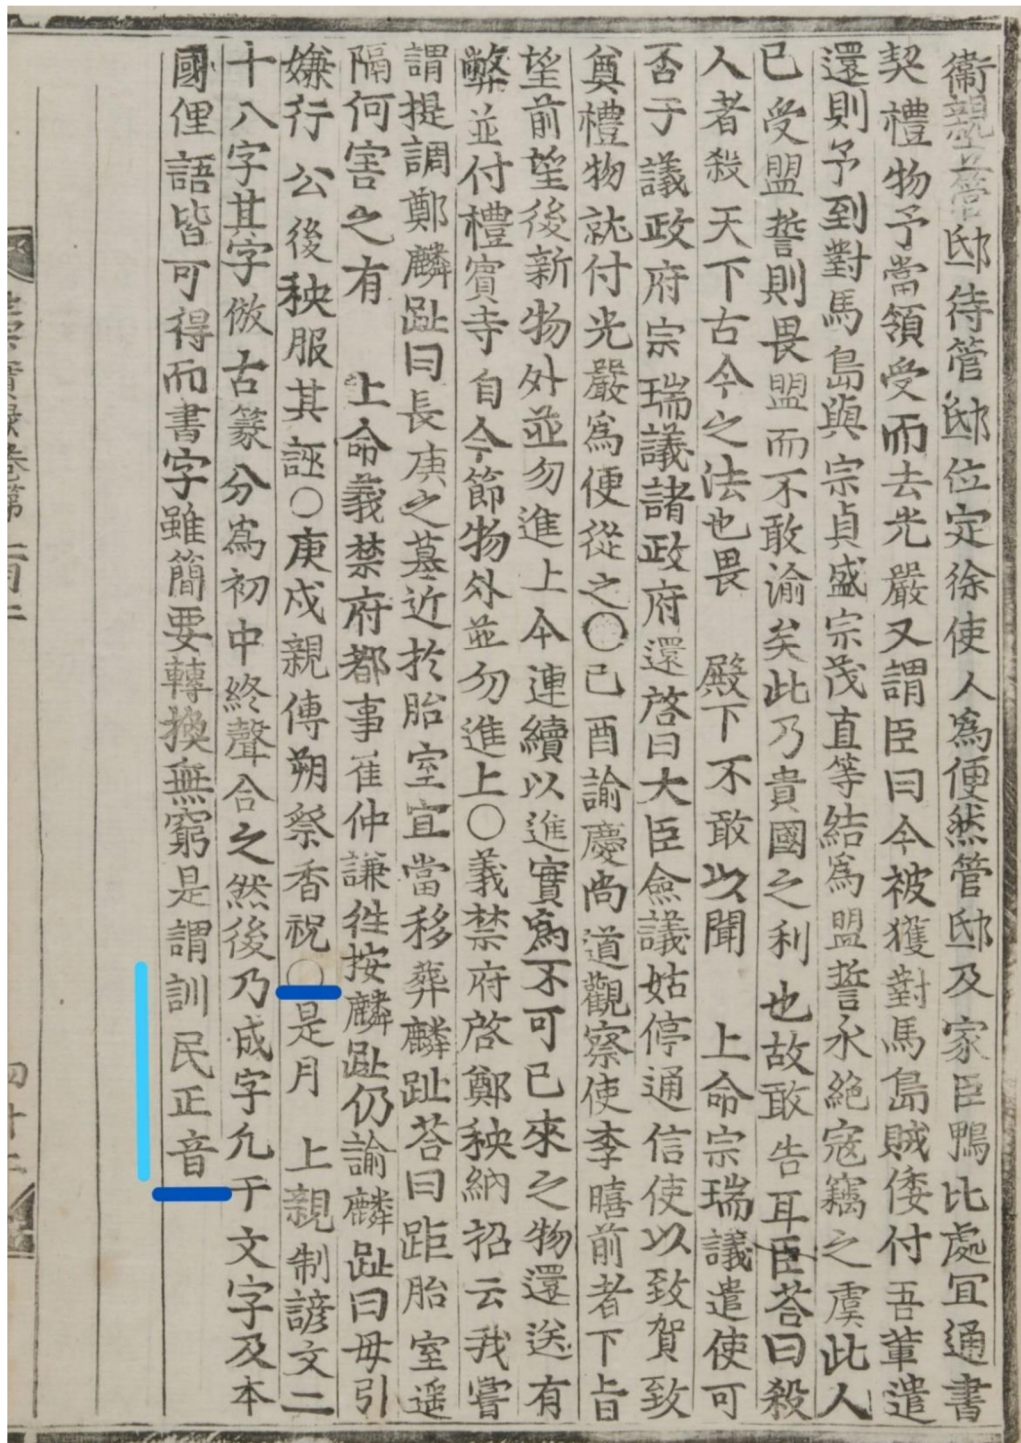 衞親並管邸待管邸位定徐使人爲便然管邸及家臣鴨比處冝通書
契禮物予當領受而去光嚴又謂臣曰今被獲對馬島賊倭付吾輩遣
還則予到對馬島與宗貞盛宗茂直等結爲盟誓永絶寇竊之虞此人
已受盟誓則畏盟而不敢渝矣此乃貴國之利也故敢告耳臣荅曰殺
人者殺天下古今之法也畏 殿下不敢以聞 上命宗瑞議遣使可
否于議政府宗瑞議諸政府還啓曰大臣僉議姑停通信使以致賀致
奠禮物就付光嚴爲便從之○己酉諭慶尙道觀察使李暿前者下旨
望前望後新物外並勿進上今連續以進實爲不可已來之物還送有
弊並付禮賓寺自今節物外並勿進上○義禁府啓鄭秧納招云我嘗
謂提調鄭麟趾曰長庚之墓近於胎室宜當移葬麟趾荅曰距胎室遥
隔何害之有 上命義禁府都事崔仲謙徃按麟趾仍諭麟趾曰毋引
嫌行公後秧服其誣○庚戍親傳朔祭香祝○是月 上親制諺文二
十八字其字倣古篆分爲初中終聲合之然後乃成字凢干文字及本
國俚語皆可得而書字雖簡要轉換無窮是謂訓民正音